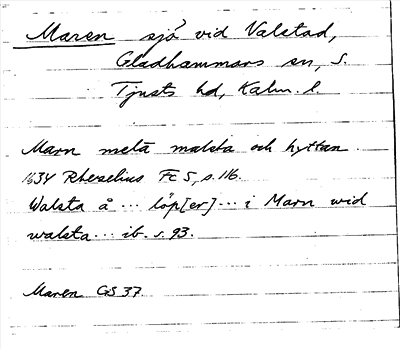 Maren sjö vid Valstad,
Gladhammars sn, S.
Tjusts hd, Kalm. l.
Marn mela malsta och hyttan
1634 Rhezelius Fc 5, s. 116.
Walsta å ... löp[er] ... i Marn wid
walsta ... ib. s. 93.
Maren GS 37